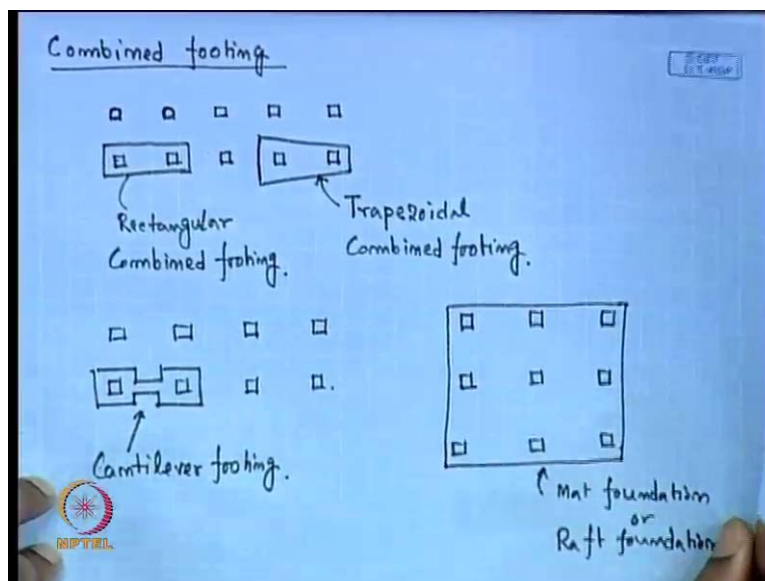 Combimed footing
Rectangular
Combimed footing.
Trapezoidal
Combimed footing.
Camtilever footing.
Mat foumdation
or
Raft foumdation
NPTEL